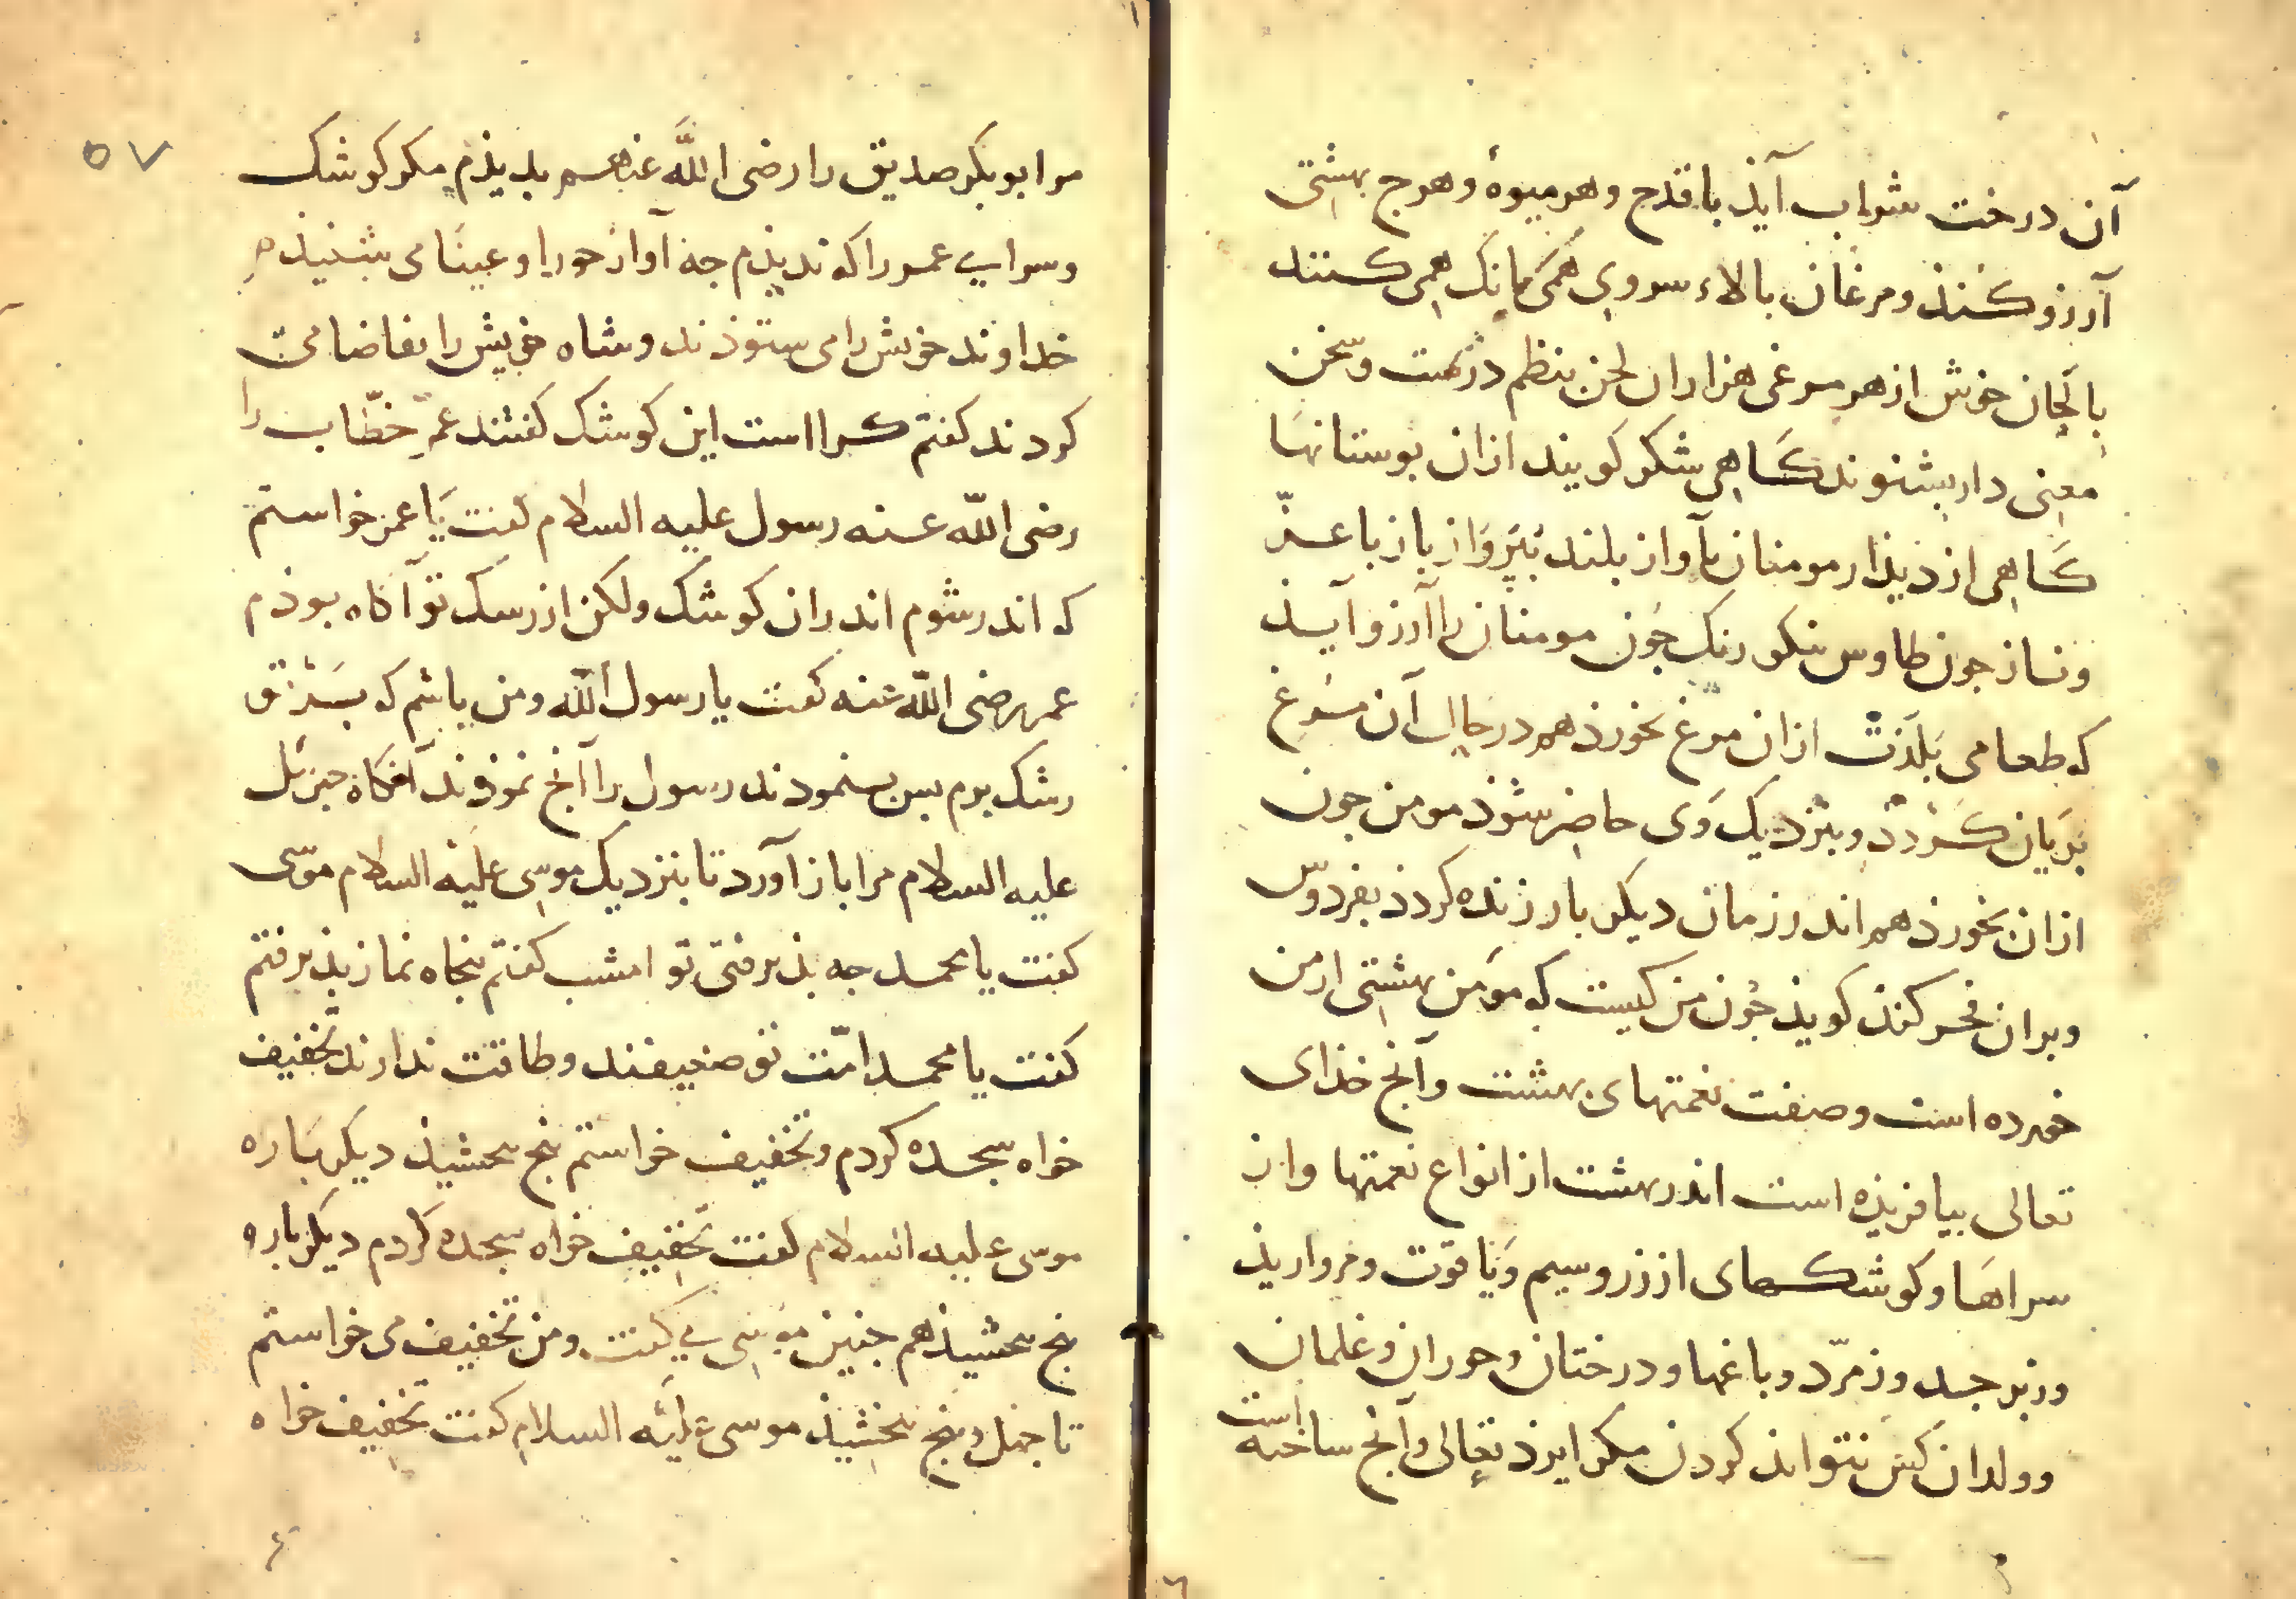 آن درخت شراب آیذ با قدح و هر میوهٔ و هرج بهشتی
آرزو کنذ و مرغان بالاء سر وی همی بانک همی کنند
بالحان خوش از هر مرغی هزاران لحن بنظم درنهت و سخن
معنی دار بشنوند کاهی شکر کویند ازان بوستانها
کاهی از دیذار مومنان بآواز بلند بپرواز باز با عزّ
و ناز جون طاوس نیکو رنک جون مومنان را آرزو آیذ
که طعامی بلذت ازان مرغ بخورذ هم در حال آن مرغ
بریان کردد و بنزدیک وی حاضر شوذ مومن جون
ازان بخورذ هم اندر زمان دیکر بار زنده کردذ بفردوس
و بران فخر کنذ کویذ جون من کیست که مومن بهشتی از من
خورده است و صفت نعمتهای بهشت و آنج خذای
تعالی بیافریذه است اندر بهشت از انواع نعمتها و از
سراها و کوشکهای از زر و سیم و یاقوت و مرواریذ
و زبرجد و زمرّد و باغها و درختان و حوران و غلمان
و ولدان کس نتواند کردن مکر ایزذ تعالی و آنج ساخته است
۵۷
مر ابوبکر صدیق را رضی الله عنهم بدیذم مکر کوشک
و سرای عمر را که ندیذم جه آواز حورا و عینا می شنیذم
خداوند خویش را می ستوذند و شاه خویش را تقاضا می
کردند کفتم کرا است این کوشک کفتند عمر خطّاب را
رضی الله عنه رسول علیه السلام کفت یا عمر خواستم
که اندر شوم اندران کوشک ولکن از رسک تو آکاه بوذم
عمر رضی الله عنه کفت یا رسول الله و من باشم که بر تو
رشک برم بس بنمودند رسول را آنج نموذند آنکاه جبرئل
علیه السلام مرا باز آورد تا بنزدیک موسی علیه السلام موسی
کفت یا محمد جه بذیرفتی تو امشب کفتم بنجاه نماز بذیرفتم
کفت یا محمد امّت تو ضعیفند و طاقت ندارند تخفیف
خواه سجده کردم و تخفیف خواستم بنج بخشیذ دیکر باره
موسی علیه السلام کفت تخفیف خواه سجده کردم دیکر باره
بنج بخشیذ هم جنین موسی می کفت و من تخفیف می خواستم
تا جهل و بنج بخشیذ موسی علیه السلام کفت تخفیف خواه